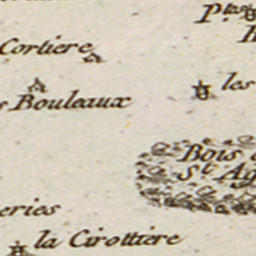 P.tes
Cortiere
les
Bouleaux
Bois
S.t Ag
eries
la Cirottiere